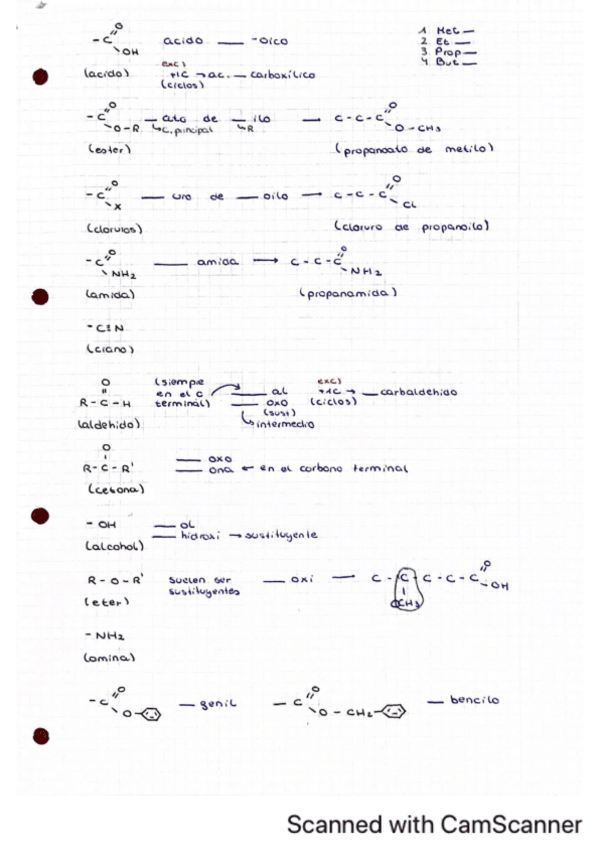 -C(=O)OH acido ___ -oico
1. Met—
2 Et —
3 Prop—
4 But—
(acido) exc) +1C → ac. — carboxílico
(ciclos)
-C(=O)O-R — ato de — ilo → C-C-C(=O)O-CH3
↳C.principal ↳R
(ester) (propanoato de metilo)
-C(=O)X — uro de — oilo → C-C-C(=O)Cl
(cloruros) (cloruro de propanoilo)
-C(=O)NH2 — amida → C-C-C(=O)NH2
(amida) (propanamida)
-C≡N
(ciano)
R-C(=O)-H (siempre en el C terminal) — al
— oxo (sust)
↳intermedio
exc) +1C → — carbaldehido
(ciclos)
(aldehido)
R-C(=O)-R' — oxo
— ona ← en el carbono terminal
(cetona)
- OH — ol
— hidroxi → sustituyente
(alcohol)
R-O-R' suelen ser sustituyentes — oxi → C-C-C-C-C(=O)OH
OCH3
(eter)
- NH2
(amina)
-C(=O)O- — fenil
-C(=O)O-CH2- — bencilo
Scanned with CamScanner